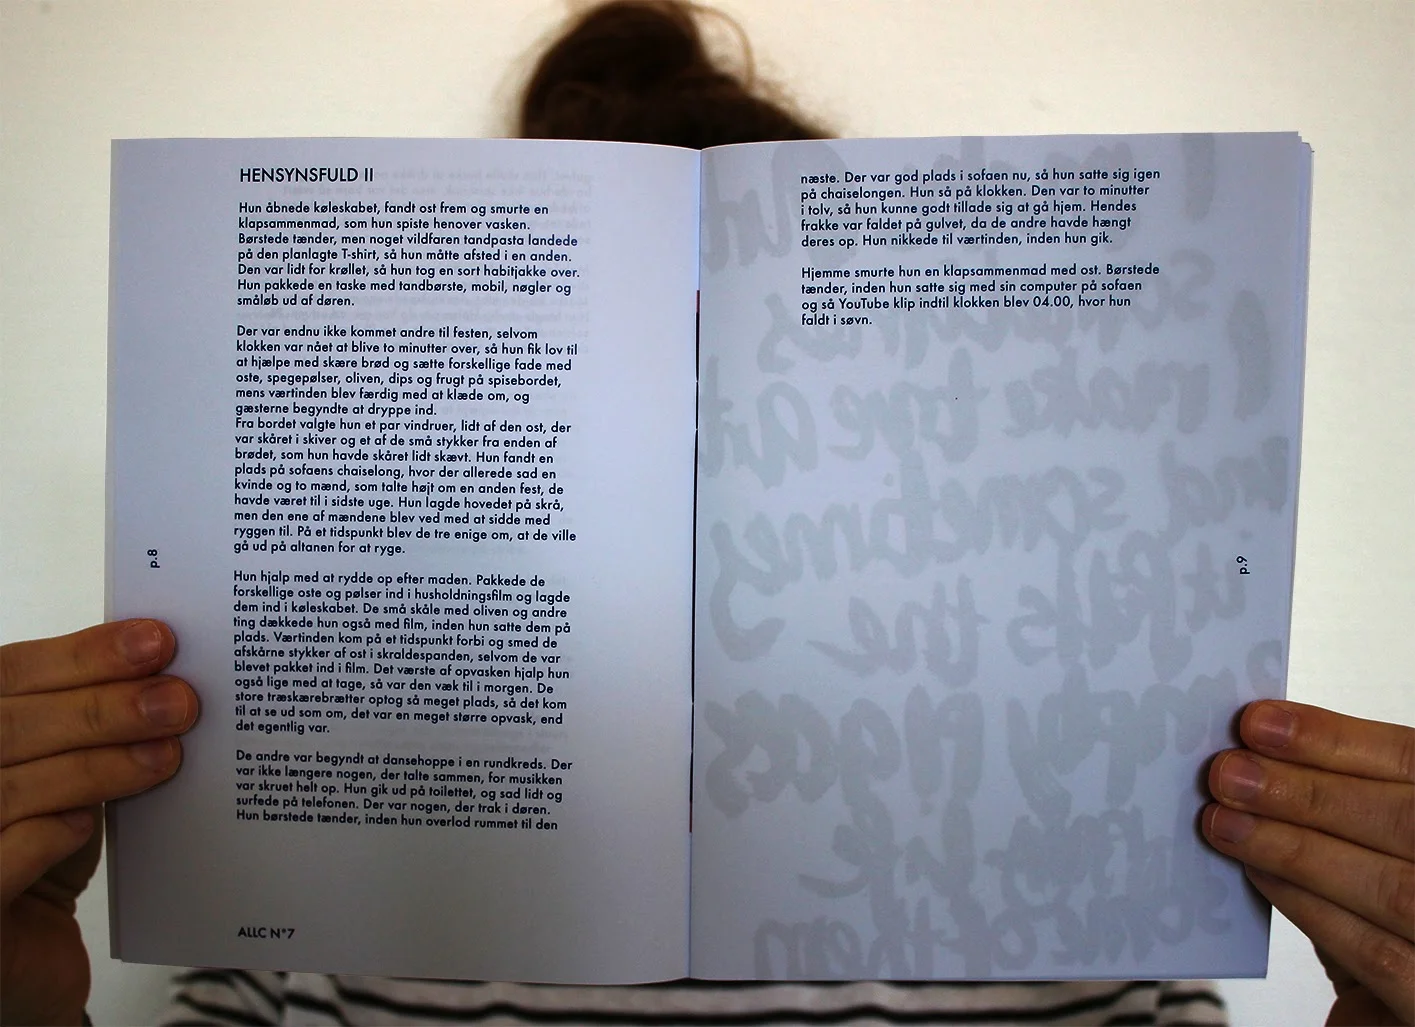 HENSYNSFULD II
Hun åbnede køleskabet, fandt ost frem og smurte en
klapsammenmad, som hun spiste henover vasken.
Børstede tænder, men noget vildfaren tandpasta landede
på den planlagte T-shirt, så hun måtte afsted i en anden.
Den var lidt for krøllet, så hun tog en sort habitjakke over.
Hun pakkede en taske med tandbørste, mobil, nøgler og
småløb ud af døren.
Der var endnu ikke kommet andre til festen, selvom
klokken var nået at blive to minutter over, så hun fik lov til
at hjælpe med skære brød og sætte forskellige fade med
oste, spegepølser, oliven, dips og frugt på spisebordet,
mens værtinden blev færdig med at klæde om, og
gæsterne begyndte at dryppe ind.
Fra bordet valgte hun et par vindruer, lidt af den ost, der
var skåret i skiver og et af de små stykker fra enden af
brødet, som hun havde skåret lidt skævt. Hun fandt en
plads på sofaens chaiselong, hvor der allerede sad en
kvinde og to mænd, som talte højt om en anden fest, de
havde været til i sidste uge. Hun lagde hovedet på skrå,
men den ene af mændene blev ved med at sidde med
ryggen til. På et tidspunkt blev de tre enige om, at de ville
gå ud på altanen for at ryge.
Hun hjalp med at rydde op efter maden. Pakkede de
forskellige oste og pølser ind i husholdningsfilm og lagde
dem ind i køleskabet. De små skåle med oliven og andre
ting dækkede hun også med film, inden hun satte dem på
plads. Værtinden kom på et tidspunkt forbi og smed de
afskårne stykker af ost i skraldespanden, selvom de var
blevet pakket ind i film. Det værste af opvasken hjalp hun
også lige med at tage, så var den væk til i morgen. De
store træskærebrætter optog så meget plads, så det kom
til at se ud som om, det var en meget større opvask, end
det egentlig var.
De andre var begyndt at dansehoppe i en rundkreds. Der
var ikke længere nogen, der talte sammen, for musikken
var skruet helt op. Hun gik ud på toilettet, og sad lidt og
surfede på telefonen. Der var nogen, der trak i døren.
Hun børstede tænder, inden hun overlod rummet til den
p.8
ALLC N°7
næste. Der var god plads i sofaen nu, så hun satte sig igen
på chaiselongen. Hun så på klokken. Den var to minutter
i tolv, så hun kunne godt tillade sig at gå hjem. Hendes
frakke var faldet på gulvet, da de andre havde hængt
deres op. Hun nikkede til værtinden, inden hun gik.
Hjemme smurte hun en klapsammenmad med ost. Børstede
tænder, inden hun satte sig med sin computer på sofaen
og så YouTube klip indtil klokken blev 04.00, hvor hun
faldt i søvn.
p.9